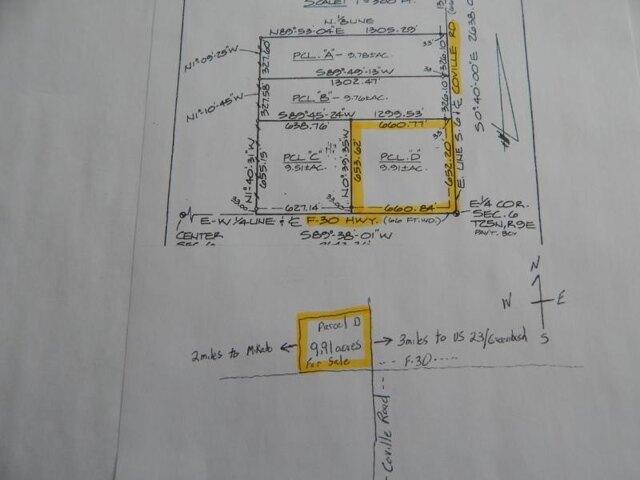 SCALE: 1"=300 ft.
N. 1/8 LINE
N89°-53'-04"E 1305.29'
N1°-09'-25"W
327.60
PCL. "A" - 9.78±AC.
33'
326.10
S89°-49'-13"W
1302.47'
N1°-10'-45"W
327.58
PCL. "B" - 9.76±AC.
326.10
S89°-45'-24"W 1299.53'
638.76' 660.77'
33'
N1°-40'-31"W
655.15'
PCL. "C"
9.51±AC.
N0°-39'-35"W
653.62'
PCL. "D"
9.91±AC.
652.20'
E. LINE S. 6 & ℄ COVILLE RD.
S0°-40'-00"E 2638.0
33.00
627.14'
33.00
660.84'
E-W 1/4 LINE & ℄ F-30 HWY. (66 FT. WD.)
CENTER
SEC. 6
S89°-38'-01"W
E 1/4 COR.
SEC. 6
T25N, R9E
N
W E
S
Parcel D
9.91 acres
For Sale
2 miles to Mikado
3 miles to US 23/Greenbush
F-30
Coville Road